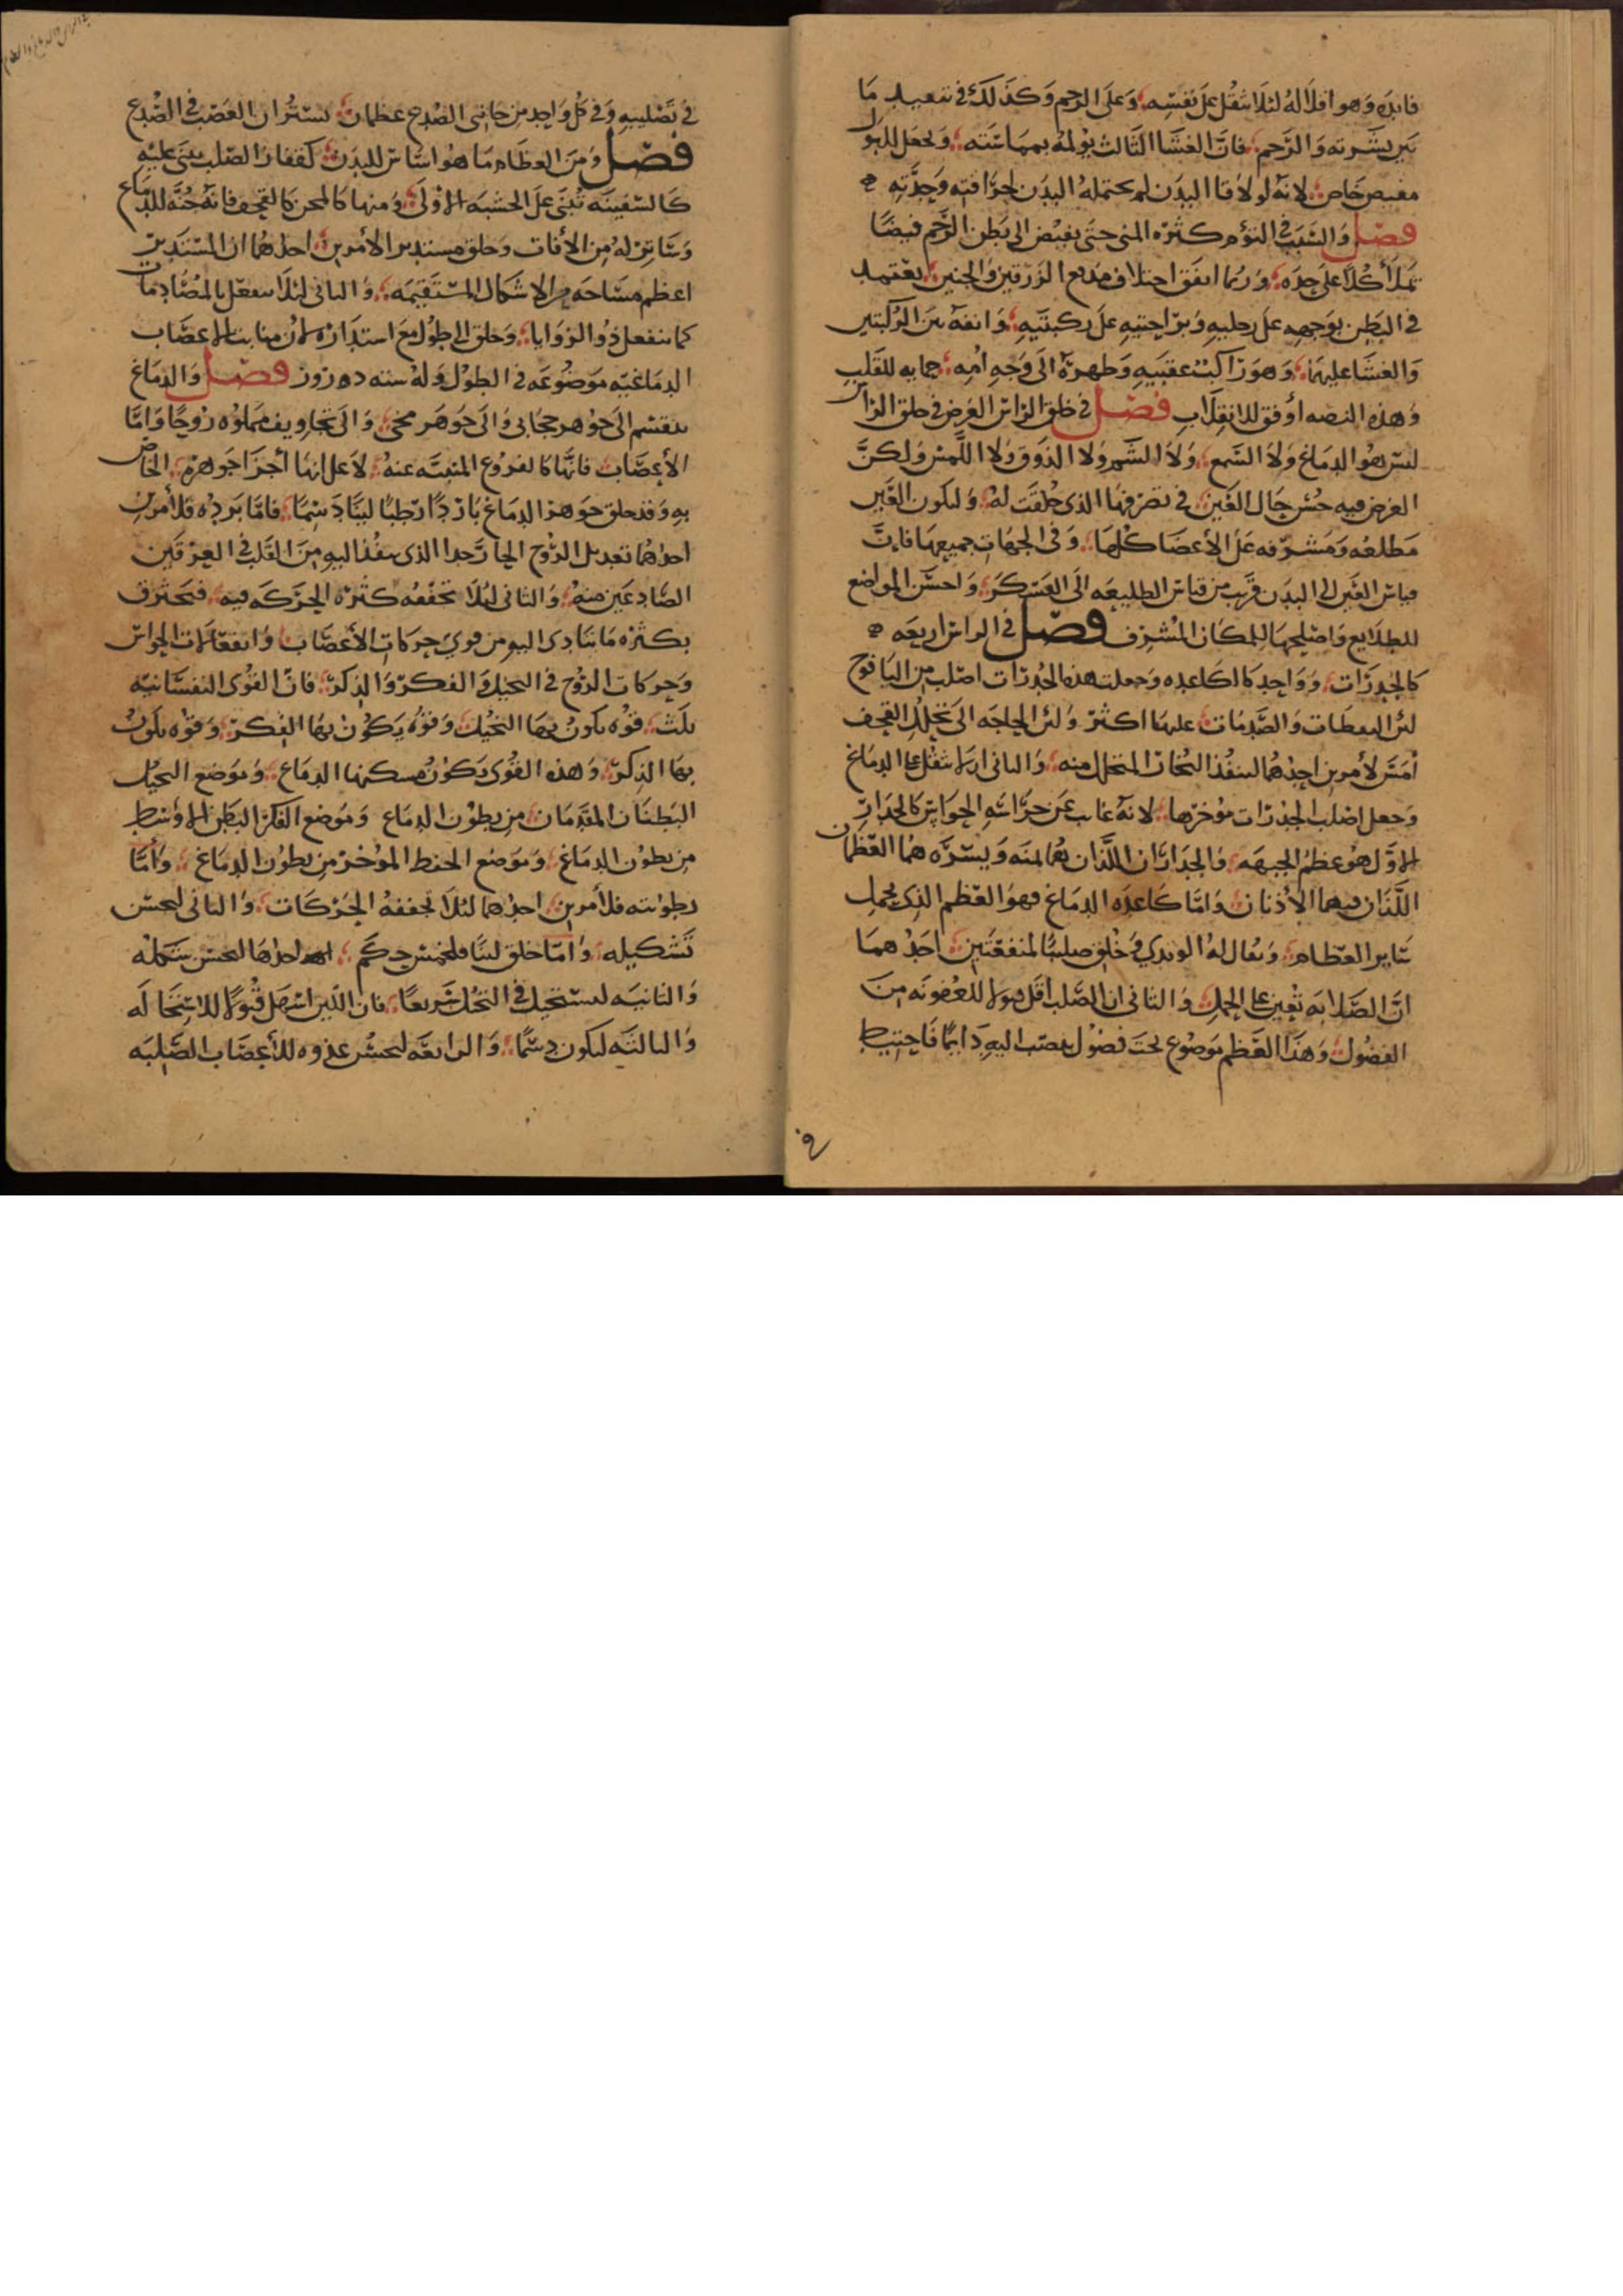 قابله وهو اقلا له لئلا يثقل على نفسه وعلى الرحم وكذلك في تبعيد ما
بين بشرته والرحم فان الغشا الثالث يولمه بمماسته ويجعل للبول
مغيض خاص لانه لو لاقا البدن لم يحتمله البدن لحرافته وحدته
فصل والسبب في التوم كثره المنى حتى يفيض الى بطن الرحم فيضا
يملا كلا على حده وربما اتفق اختلاف مدفع الزرقتين والجنين يعتمد
في البطن بوجهه على رجليه وبراحتيه على ركبتيه وانفه بين الركبتين
والعينا عليهما وهو راكب عقبيه وظهره الى وجه امه حمايه للقلب
وهذه النصبه اوفق للانقلاب فصل في خلق الراس الغرض في خلق الراس
ليس هو الدماغ ولا السمع ولا الشم ولا الذوق ولا اللمس ولكن
الغرض فيه حسن حال العين في تصرفها الذي خلقت له وليكون للعين
مطلعه ومشرفه على الاعضا كلها وفي الجهات جميعها فان
قياس العين الى البدن قريب من قياس الطليعه الى العسكر واحسن المواضع
للطلايع واصلحها المكان المشرف فصل في الراس اربعه
كالجدرات وواحد كالقاعده وجعلت هذه الجدرات اصلب من اليافوخ
لئن السقطات والصدمات عليها اكثر ولئن الحاجه الى تخلخل القحف
امس لامرين احدهما لينفذ البخار المتحلل منه والثاني لئلا يثقل على الدماغ
وجعل اصلب الجدرات موخرها لانه غايب عن حراسه الحواس كالجدار
الاول هو عظم الجبهه والجداران اللذان يمنه ويسره هما العظمان
اللذان فيهما الاذنان واما قاعده الدماغ فهو العظم الذي يحمل
ساير العظام ويقال له الوتدي وخلق صلبا لمنفعتين احدهما
ان الصلابه تعين على الحمل والثاني ان الصلب اقل قبولا للعفونه من
الفضول وهذا العظم موضوع تحت فضول تنصب اليه دايما فاحتيط
في تصليبه وفي كل واحد من جانبي الصدغ عظمان يستران العصب في الصدغ
فصل ومن العظام ما هو اساس للبدن كفقار الصلب يبنى عليه
كالسفينه تبنى على الخشبه الاولى ومنها كالمجن كالقحف فانه جنه للدماغ
وساتر له من الافات وخلق مستدير الامرين احدهما ان المستدير
اعظم مساحه من الاشكال المستقيمه والثاني لئلا ينفعل بالمصادمات
كما ينفعل ذو الزوايا وخلق الى طول مع استداره لان منابت الاعصاب
الدماغيه موضوعه في الطول وله سته دروز فصل والدماغ
ينقسم الى جوهر حجابي والى جوهر مخي والى تجاويف مملوه روحا واما
الاعصاب فانها كالفروع المنبثه عنه لا على انها اجزا جوهره الخاص
به وقد خلق جوهر الدماغ باردا رطبا لينا دسما فاما برده فلامرين
احدهما تعديل الروح الحار جدا الذي ينفذ اليه من القلب في العرقين
الصاعدين منه والثاني لئلا تجففه كثره الحركه فيه فيحترق
بكثره ما يتادى اليه من قوي حركات الاعصاب وانفعالات الحواس
وحركات الروح في التخيل والفكر والذكر فان القوى النفسانيه
ثلث قوه يكون بها التخيل وقوه يكون بها الفكر وقوه يكون
بها الذكر وهذه القوى يكون مسكنها الدماغ وموضع التخيل
البطنان المقدمان من بطون الدماغ وموضع الفكر البطن الاوسط
من بطون الدماغ وموضع الحفظ الموخر من بطون الدماغ واما
رطوبته فلامرين احدهما لئلا تجففه الحركات والثاني ليحسن
تشكيله واما خلق لينا فلخمس حكم احداها ليحسن تشكله
والثانيه ليستحيل في التخيل سريعا فان اللين اسهل قبولا للاستحاله
والثالثه ليكون دسما والرابعه ليحسن غذوه للاعصاب الصلبه